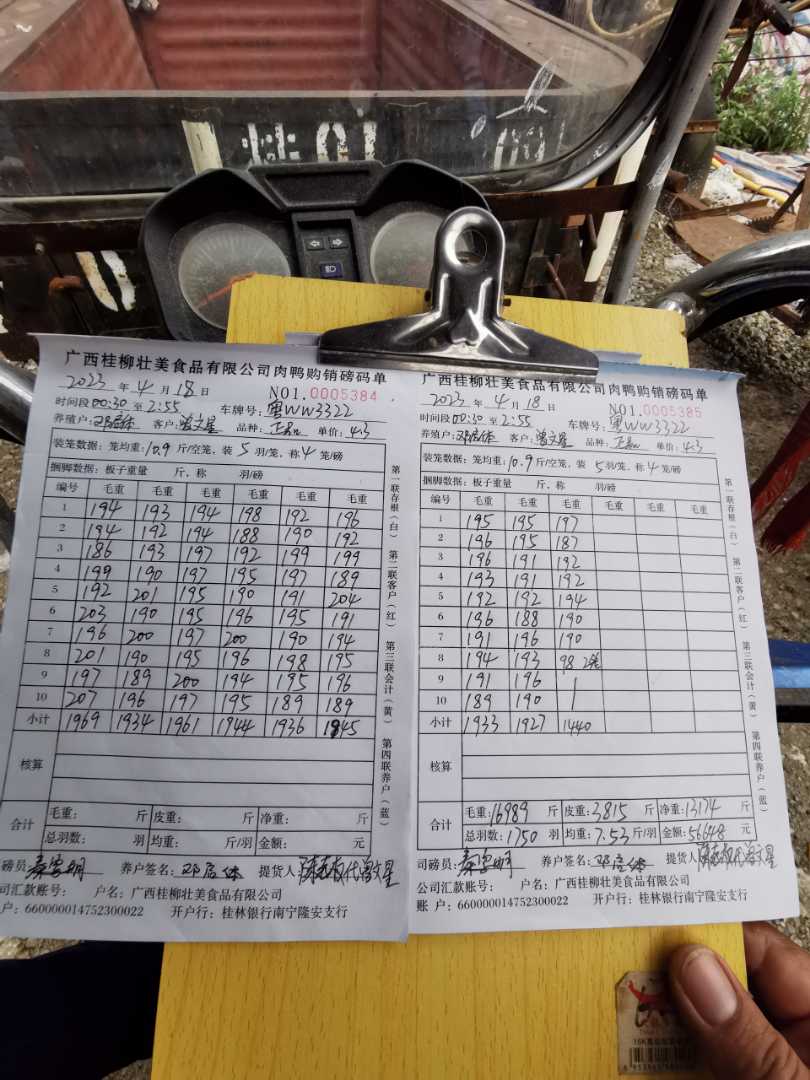 广西桂柳壮美食品有限公司肉鸭购销磅码单
2023 年 4 月 18 日 NO1.0005384
时间段 00:30 至 2:55 车牌号: 粤WW3322
养殖户: 邓启体 客户: 曾文星 品种: 单价: 4.3
装笼数据: 笼均重: 10.9 斤/空笼, 装 5 羽/笼, 称 4 笼/磅
捆脚数据: 板子重量 斤, 称 羽/磅
编号 毛重 毛重 毛重 毛重 毛重 毛重
1 194 193 194 198 192 196
2 194 192 194 188 190 192
3 186 193 197 192 199 199
4 199 190 197 195 197 189
5 192 201 195 190 191 204
6 203 190 195 196 195 191
7 196 200 197 200 190 194
8 201 190 195 196 198 195
9 197 189 200 194 195 196
10 207 196 197 195 189 189
小计 1969 1934 1961 1944 1936 1945
核算
合计 毛重: 斤 皮重: 斤 净重: 斤
总羽数: 羽 均重: 斤/羽 金额: 元
司磅员: 养户签名: 邓启体 提货人: 代曾文星
公司汇款账号: 户名: 广西桂柳壮美食品有限公司
户: 660000014752300022 开户行: 桂林银行南宁隆安支行
第一联存根(白) 第二联客户(红) 第三联会计(黄) 第四联养户(蓝)
广西桂柳壮美食品有限公司肉鸭购销磅码单
2023 年 4 月 18 日 NO1.0005385
时间段 00:30 至 2:55 车牌号: 粤WW3322
养殖户: 邓启体 客户: 曾文星 品种: 单价: 4.3
装笼数据: 笼均重: 10.9 斤/空笼, 装 5 羽/笼, 称 4 笼/磅
捆脚数据: 板子重量 斤, 称 羽/磅
编号 毛重 毛重 毛重 毛重 毛重 毛重
1 195 195 197
2 196 195 187
3 196 191 192
4 193 191 192
5 192 192 194
6 196 188 190
7 191 196 190
8 194 193 98 2笼
9 191 196
10 189 190
小计 1933 1927 1440
核算
合计 毛重: 16989 斤 皮重: 3815 斤 净重: 13174 斤
总羽数: 1750 羽 均重: 7.53 斤/羽 金额: 56648 元
司磅员: 养户签名: 邓启体 提货人: 代曾文星
公司汇款账号: 户名: 广西桂柳壮美食品有限公司
账 户: 660000014752300022 开户行: 桂林银行南宁隆安支行
第一联存根(白) 第二联客户(红) 第三联会计(黄) 第四联养户(蓝)